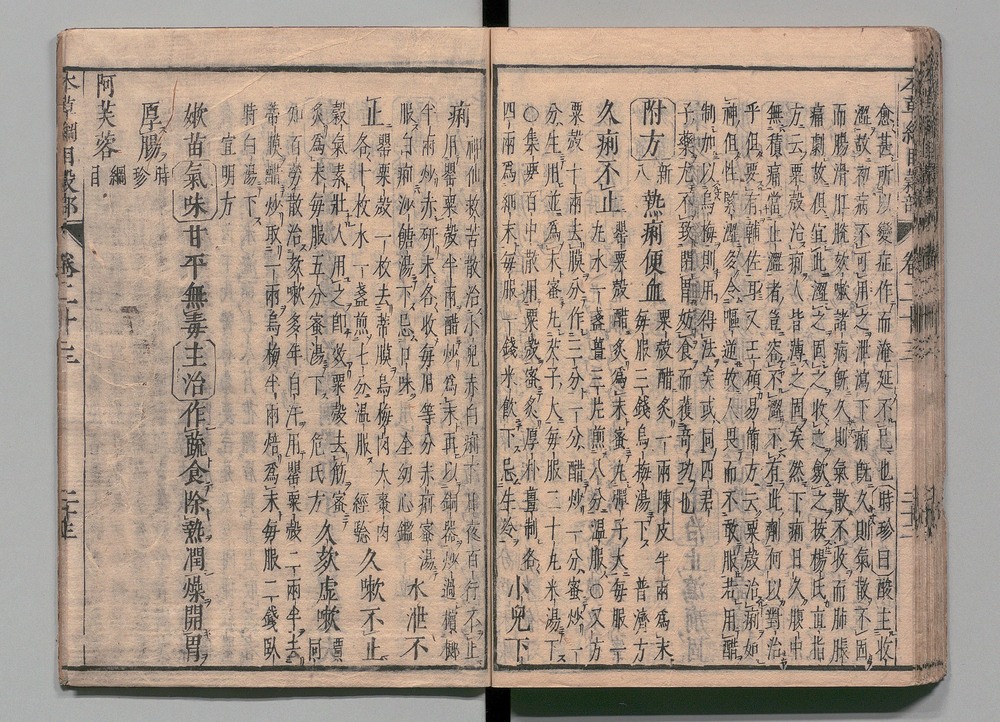 愈甚所以變症作而淹延不已也時珍曰酸主收
澀故初病不可用之泄瀉下痢既久則氣散不固
而腸滑肛脫欬嗽諸病既久則氣散不收而肺脹
痛劇故俱宜此澀之固之收之斂之按楊氏直指
方云粟殼治痢人皆薄之固矣然下痢日久腹中
無積痛當止澀者豈容不澀不有此劑何以對治
乎但要有輔佐耳又王碩易簡方云粟殼治痢如
神但性緊澀多令嘔逆故人畏而不敢服若用醋
制加以烏梅則用得法矣或同四君
子藥尤不致閉胃妨食而獲奇功也
附方新八熱痢便血粟殼醋炙一兩陳皮半兩爲末每服三錢烏梅湯下普濟方
久痢不止罌粟殼醋炙爲末蜜丸彈子大每服一
丸水一盞薑三片煎八分溫服○又方
粟殼十兩去膜分作三分一分醋炒一分蜜炒一
分生用並爲末蜜丸芡子大每服三十丸米湯下
○集要百中散用粟殼蜜炙厚朴薑制各
四兩爲細末每服一錢米飲下忌生冷小兒下
痢神仙救苦散治小兒赤白痢下日夜百行不止
用罌粟殼半兩醋炒爲末再以銅器炒過檳榔
半兩炒赤研末各收每用等分赤痢蜜湯
服白痢沙糖湯下忌口味全幼心鑑水泄不
止罌粟殼一枚去蒂膜烏梅肉大棗肉
各十枚水一盞煎七分溫服經驗久嗽不止
穀氣素壯人用之即效粟殼去筋蜜
炙爲末每服五分蜜湯下危氏方久欬虛嗽賈同
知百勞散治欬嗽多年自汗用罌粟殼二兩半去
蒂膜醋炒取一兩烏梅半兩焙爲末每服二錢臥
時白湯下
宣明方
嫩苗氣味甘平無毒主治作蔬食除熱潤燥開胃
厚腸時珍
阿芙蓉綱目
本草綱目穀部 卷二十三